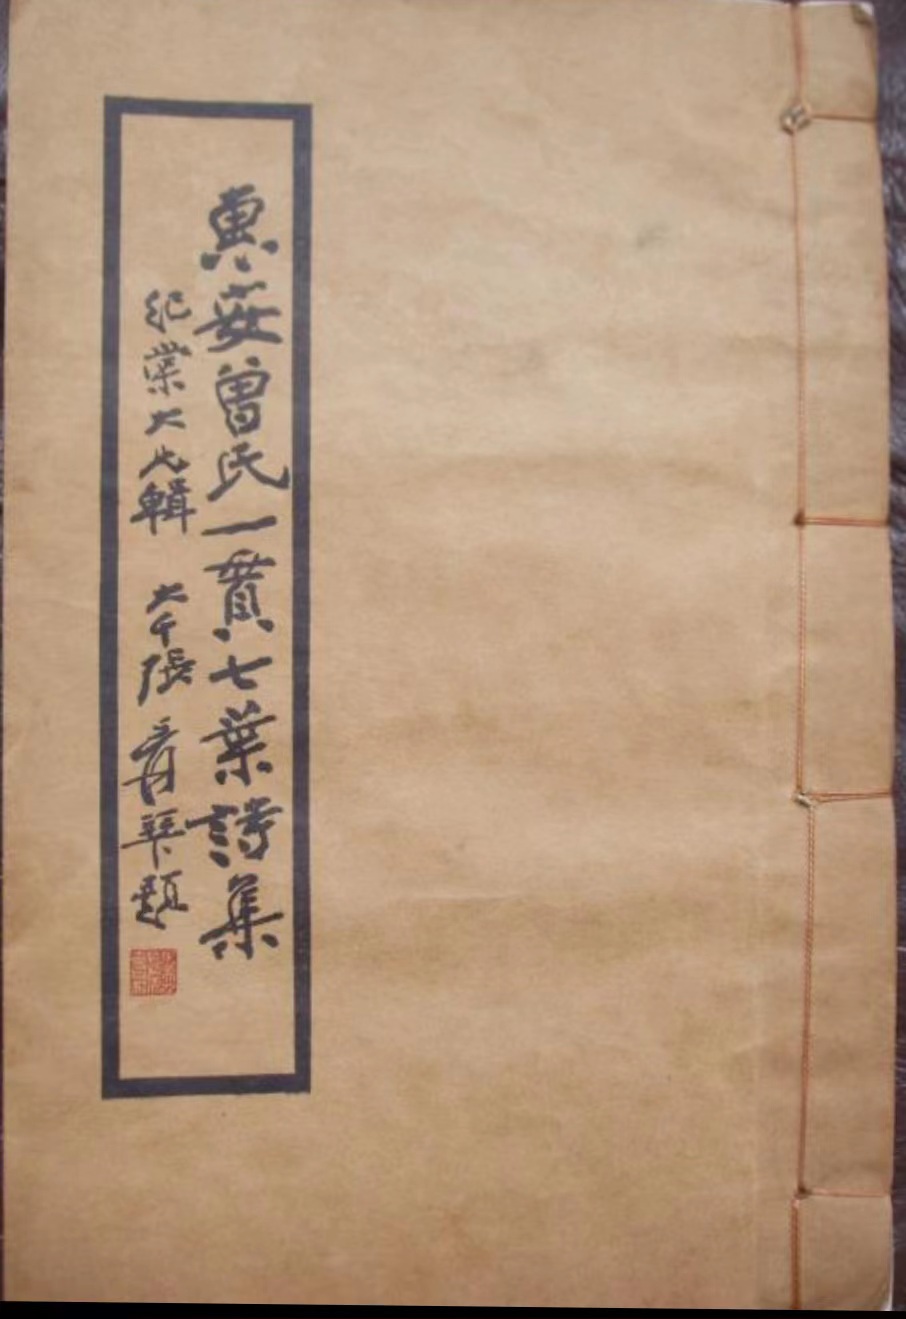 惠安曾氏一貫七葉詩集
紀棠大兄輯 大千張爰拜題